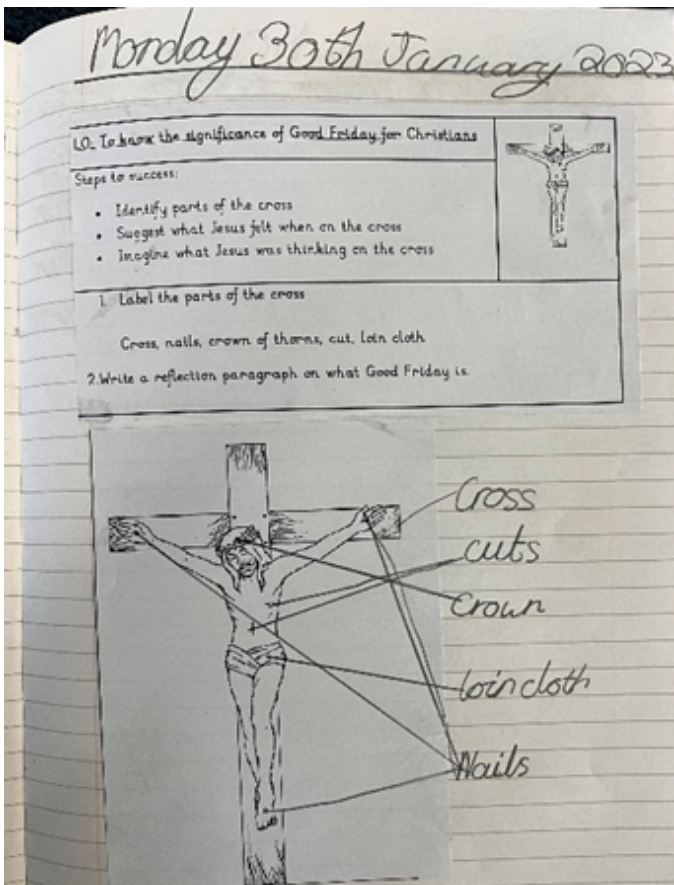 Monday 30th January 2023
LO_ To know the significance of Good Friday for Christians
Steps to success:
• Identify parts of the cross
• Suggest what Jesus felt when on the cross
• Imagine what Jesus was thinking on the cross
1. Label the parts of the cross
Cross, nails, crown of thorns, cut, loin cloth
2.Write a reflection paragraph on what Good Friday is.
Cross
cuts
Crown
loin cloth
Nails